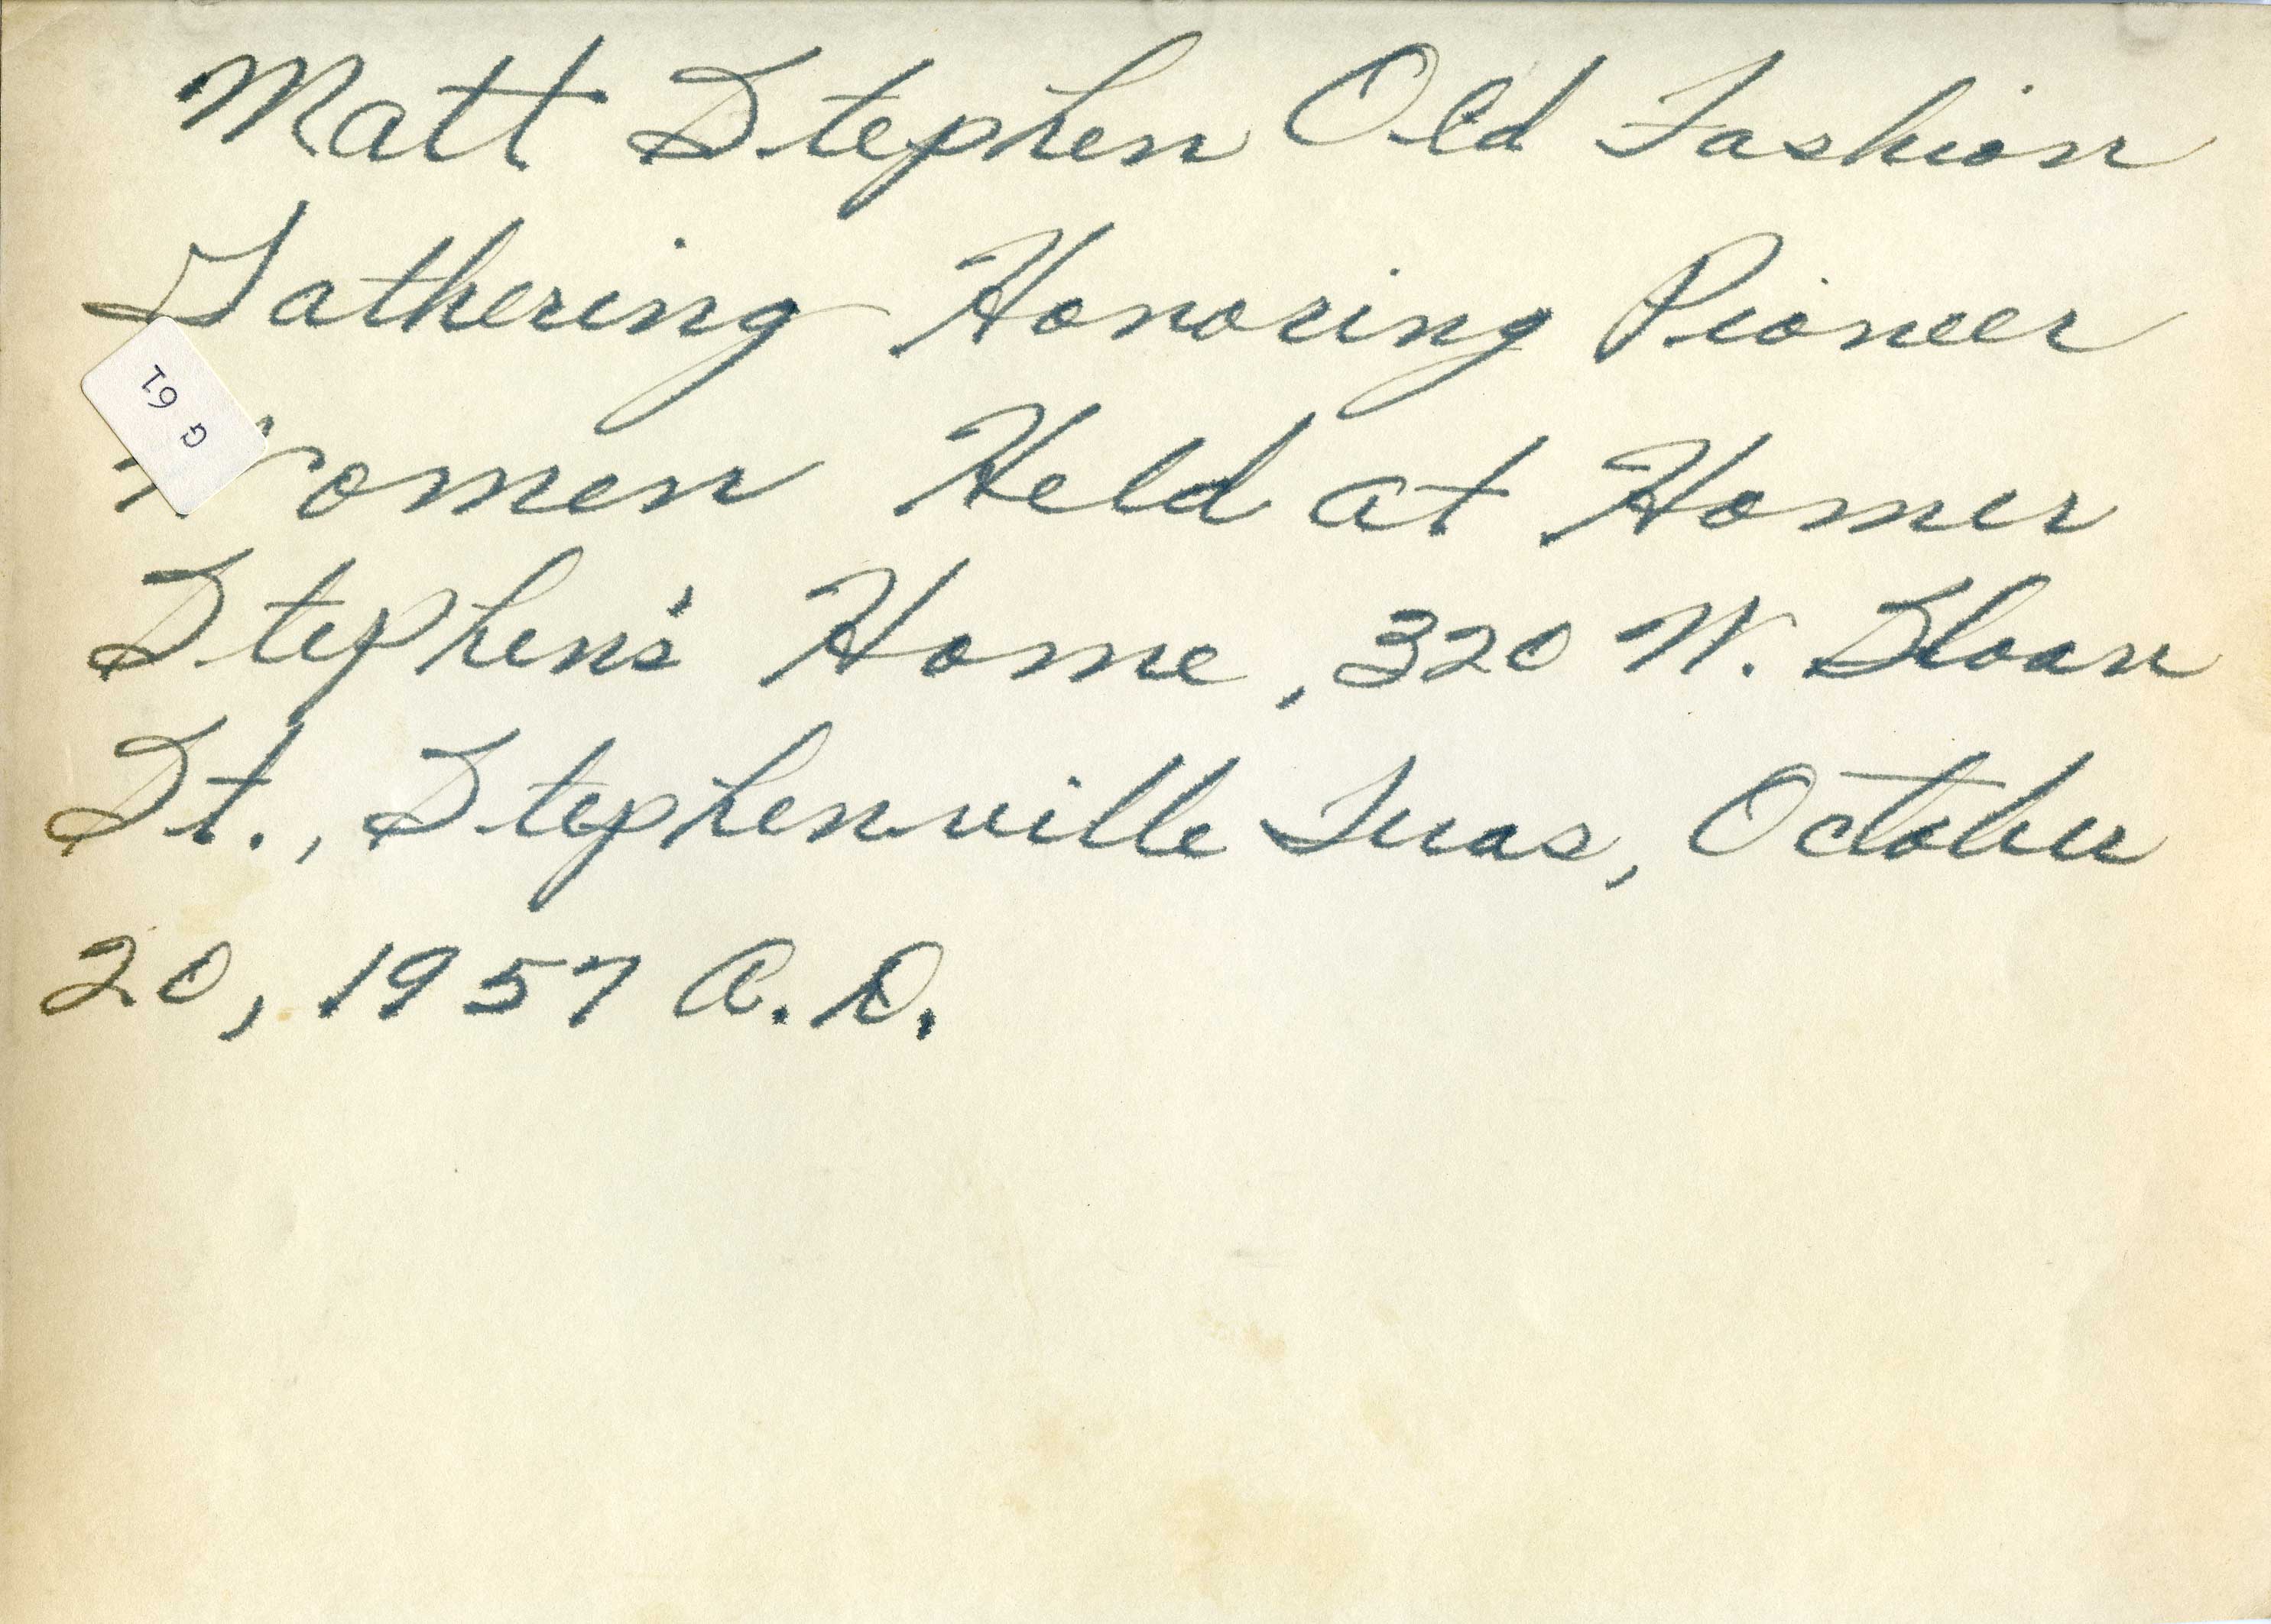 Matt Stephen Old Fashion
Gathering Honoring Pioneer
G 61
Women Held at Homer
Stephen's Home, 320 W. Sloan
St., Stephenville Texas, October
20, 1957 A.D.